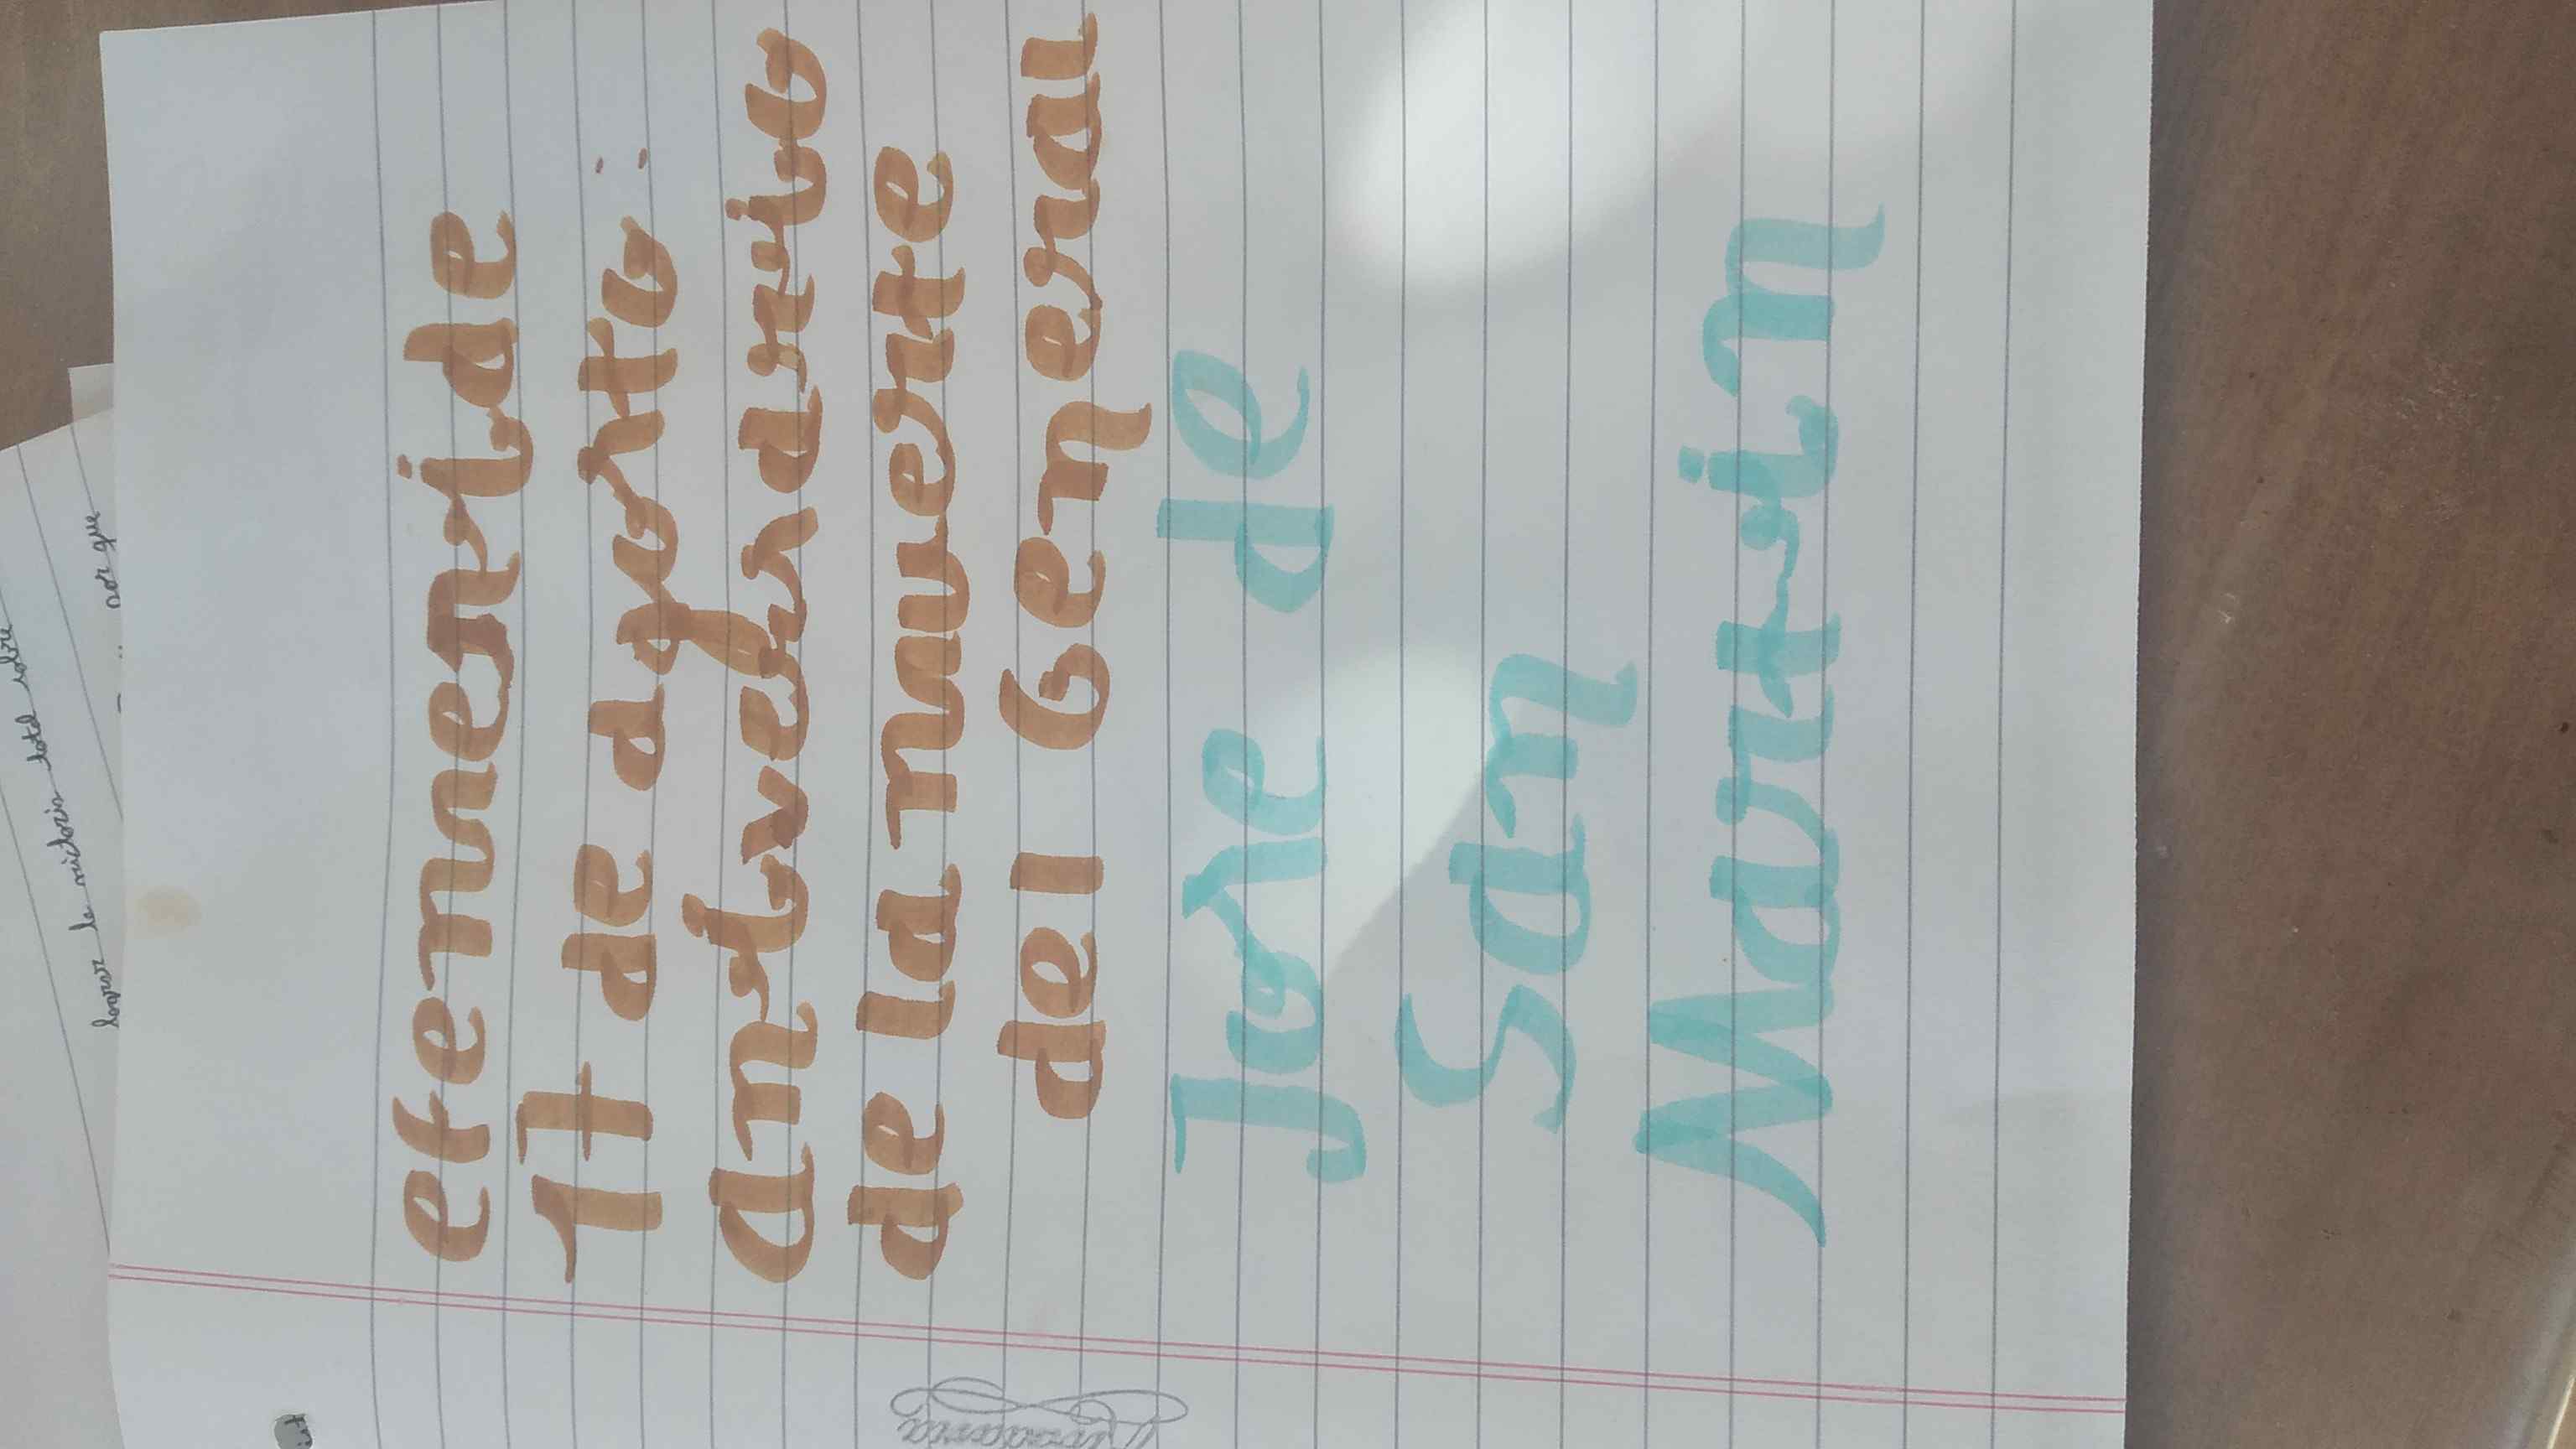 efemeride
17 de agosto:
aniversario
de la muerte
del General
Jose de
San
Martin
lograr la victoria total sobre
por que